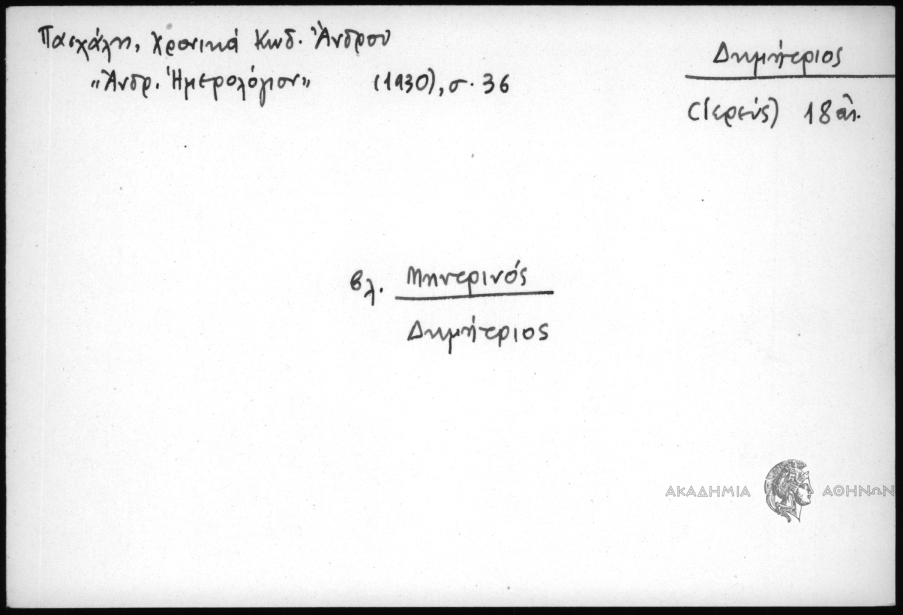 Πασχάλη, Χρονικά Κωδ. Ἄνδρου
"Ἀνδρ. Ἡμερολόγιον" (1930), σ. 36
Δημήτριος
(Ἱερεύς) 18 αἰ.
βλ. Μηνερινός
Δημήτριος
ΑΚΑΔΗΜΙΑ ΑΘΗΝΩΝ